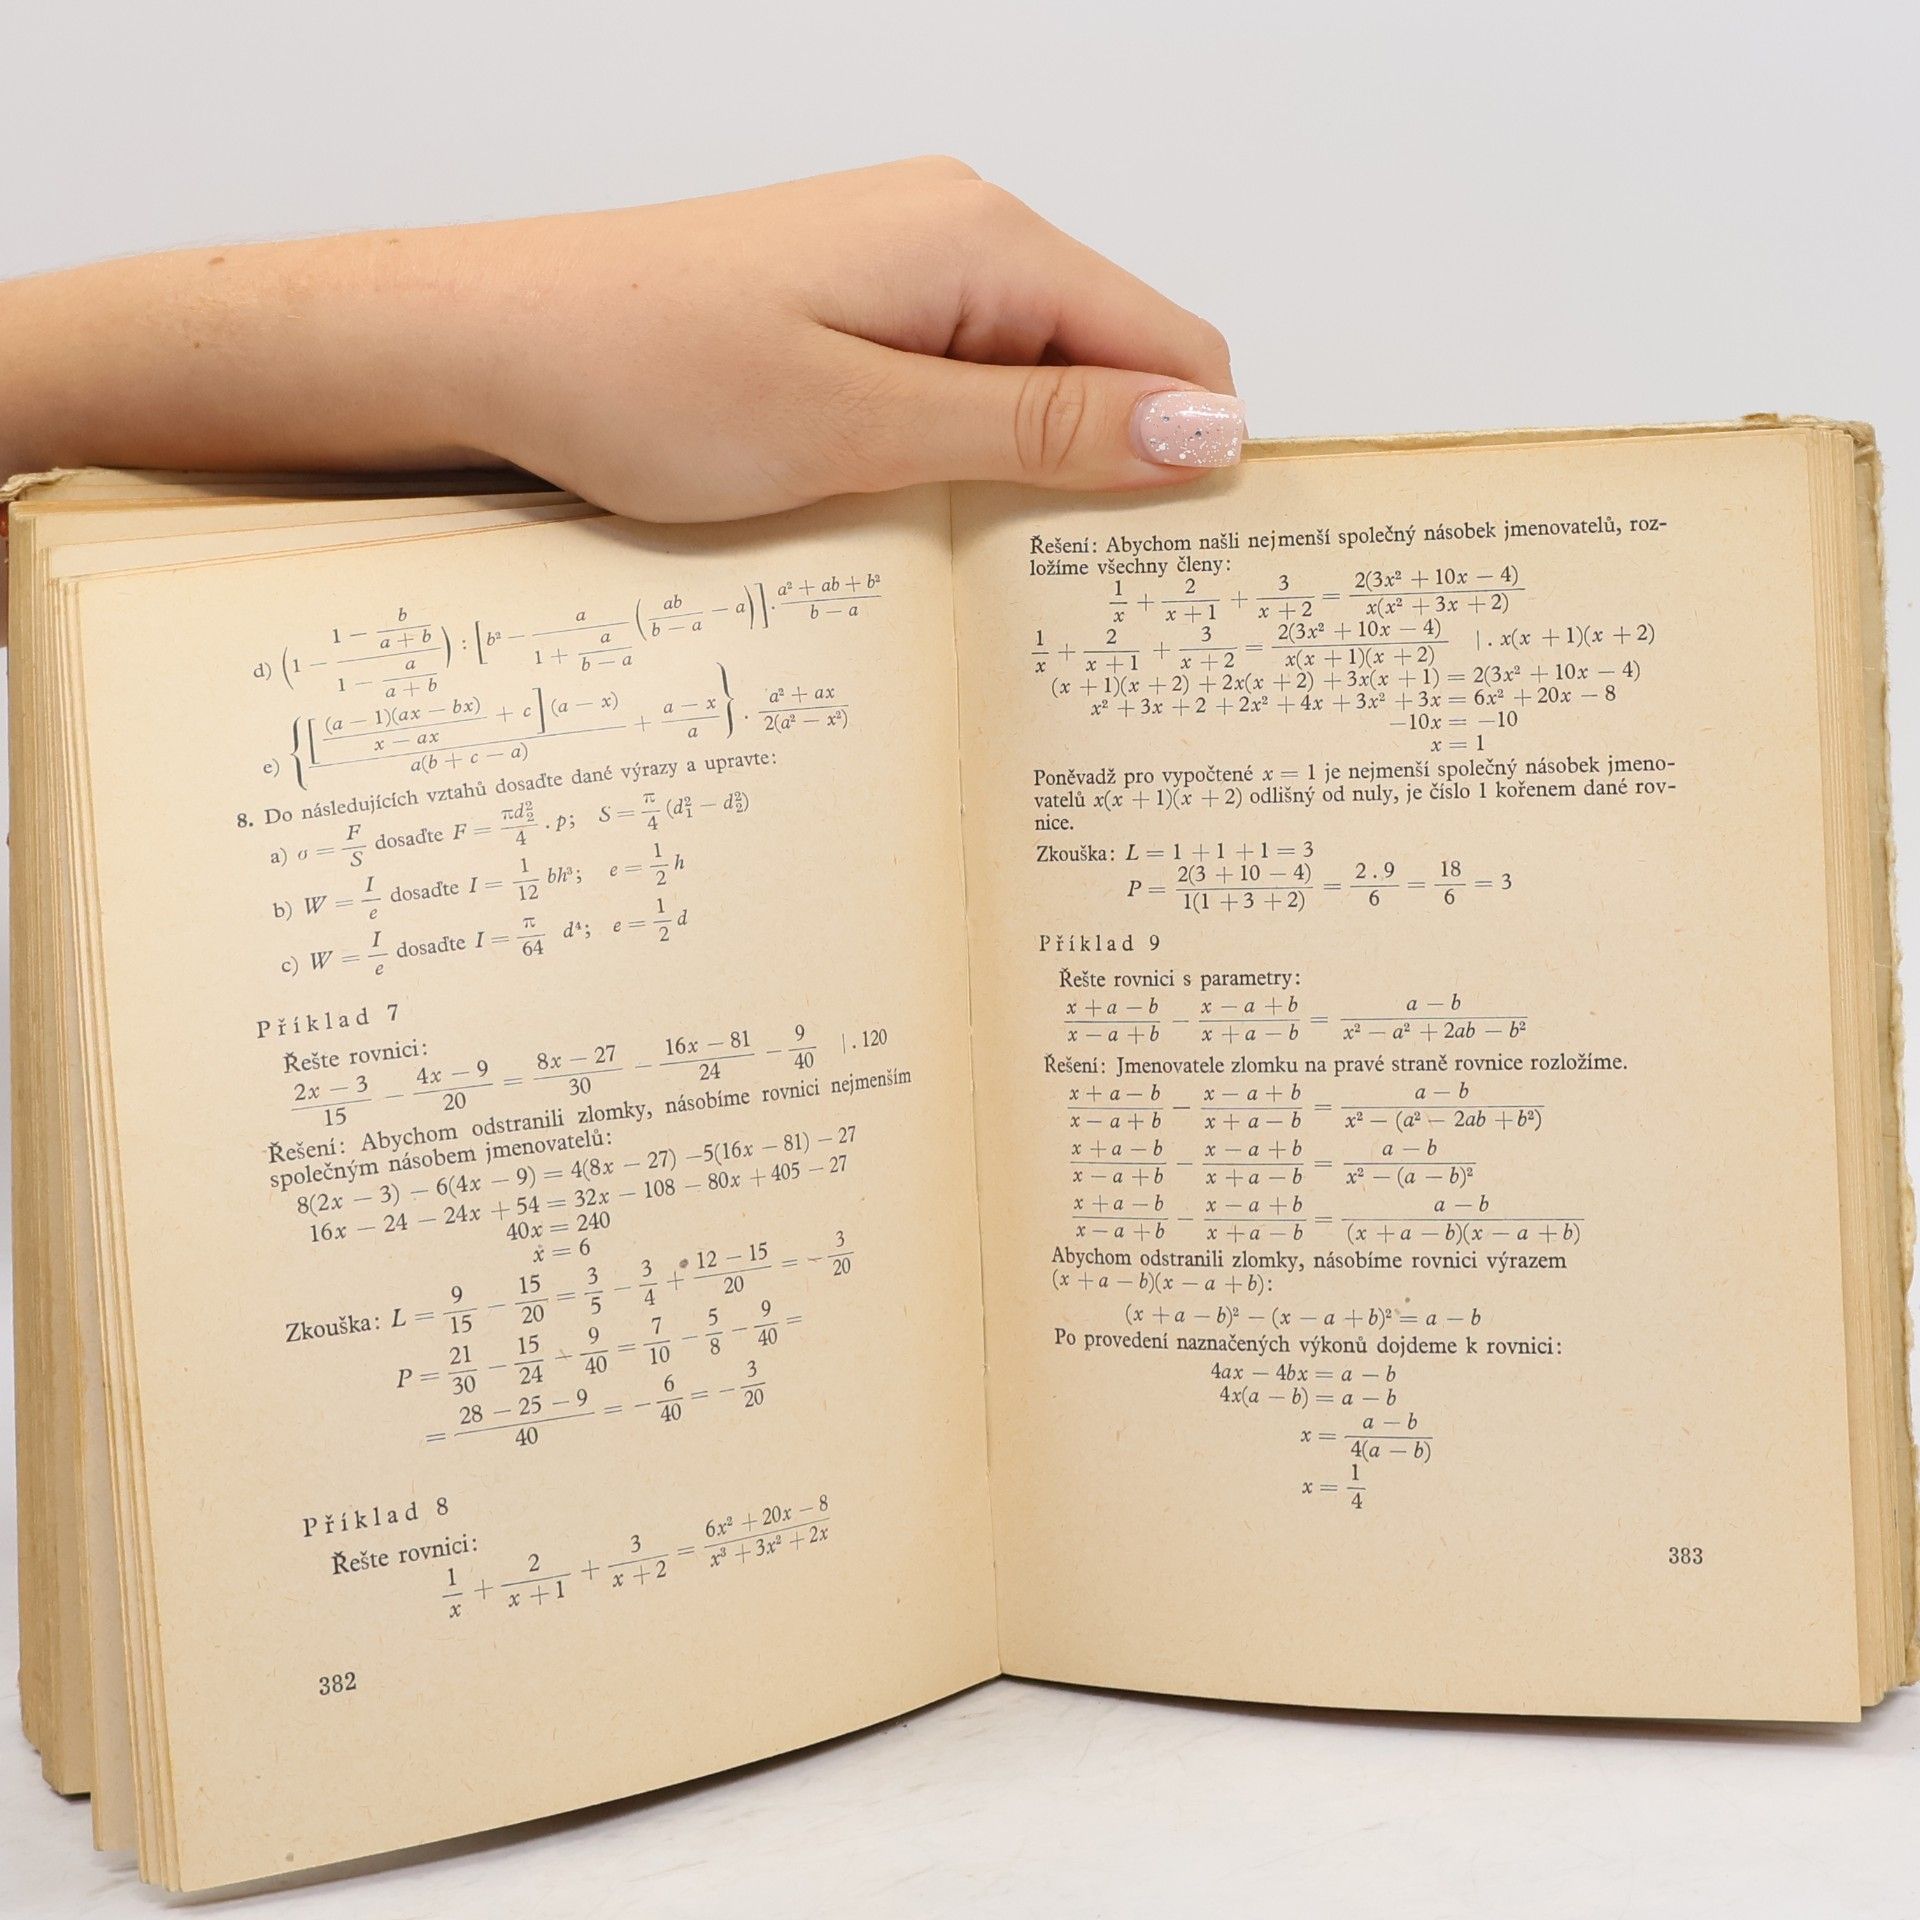 d) (1 − (1 − b/(a + b))/(1 − a/(a + b))) : [b² − a/(1 + a/(b − a)) (ab/(b − a) − a)] . (a² + ab + b²)/(b − a)
e) {[(a − 1)(ax − bx)/(x − ax) + c](a − x)/(a(b + c − a)) + (a − x)/a} . (a² + ax)/(2(a² − x²))
8. Do následujících vztahů dosaďte dané výrazy a upravte:
a) σ = F/S dosaďte F = πd₂²/4 . p; S = π/4 (d₁² − d₂²)
b) W = I/e dosaďte I = 1/12 bh³; e = 1/2 h
c) W = I/e dosaďte I = π/64 d⁴; e = 1/2 d
Příklad 7
Řešte rovnici:
(2x − 3)/15 − (4x − 9)/20 = (8x − 27)/30 − (16x − 81)/24 − 9/40 | . 120
Řešení: Abychom odstranili zlomky, násobíme rovnici nejmenším
společným násobem jmenovatelů:
8(2x − 3) − 6(4x − 9) = 4(8x − 27) −5(16x − 81) − 27
16x − 24 − 24x + 54 = 32x − 108 − 80x + 405 − 27
40x = 240
x = 6
Zkouška: L = 9/15 − 15/20 = 3/5 − 3/4 + (12 − 15)/20 = − 3/20
P = 21/30 − 15/24 − 9/40 = 7/10 − 5/8 − 9/40 =
= (28 − 25 − 9)/40 = − 6/40 = − 3/20
Příklad 8
Řešte rovnici:
1/x + 2/(x + 1) + 3/(x + 2) = (6x² + 20x − 8)/(x³ + 3x² + 2x)
382
Řešení: Abychom našli nejmenší společný násobek jmenovatelů, roz-
ložíme všechny členy:
1/x + 2/(x + 1) + 3/(x + 2) = 2(3x² + 10x − 4)/(x(x² + 3x + 2))
1/x + 2/(x + 1) + 3/(x + 2) = 2(3x² + 10x − 4)/(x(x + 1)(x + 2)) | . x(x + 1)(x + 2)
(x + 1)(x + 2) + 2x(x + 2) + 3x(x + 1) = 2(3x² + 10x − 4)
x² + 3x + 2 + 2x² + 4x + 3x² + 3x = 6x² + 20x − 8
−10x = −10
x = 1
Poněvadž pro vypočtené x = 1 je nejmenší společný násobek jmeno-
vatelů x(x + 1)(x + 2) odlišný od nuly, je číslo 1 kořenem dané rov-
nice.
Zkouška: L = 1 + 1 + 1 = 3
P = 2(3 + 10 − 4)/(1(1 + 3 + 2)) = 2 . 9/6 = 18/6 = 3
Příklad 9
Řešte rovnici s parametry:
(x + a − b)/(x − a + b) − (x − a + b)/(x + a − b) = (a − b)/(x² − a² + 2ab − b²)
Řešení: Jmenovatele zlomku na pravé straně rovnice rozložíme.
(x + a − b)/(x − a + b) − (x − a + b)/(x + a − b) = (a − b)/(x² − (a² − 2ab + b²))
(x + a − b)/(x − a + b) − (x − a + b)/(x + a − b) = (a − b)/(x² − (a − b)²)
(x + a − b)/(x − a + b) − (x − a + b)/(x + a − b) = (a − b)/((x + a − b)(x − a + b))
Abychom odstranili zlomky, násobíme rovnici výrazem
(x + a − b)(x − a + b):
(x + a − b)² − (x − a + b)² = a − b
Po provedení naznačených výkonů dojdeme k rovnici:
4ax − 4bx = a − b
4x(a − b) = a − b
x = (a − b)/(4(a − b))
x = 1/4
383